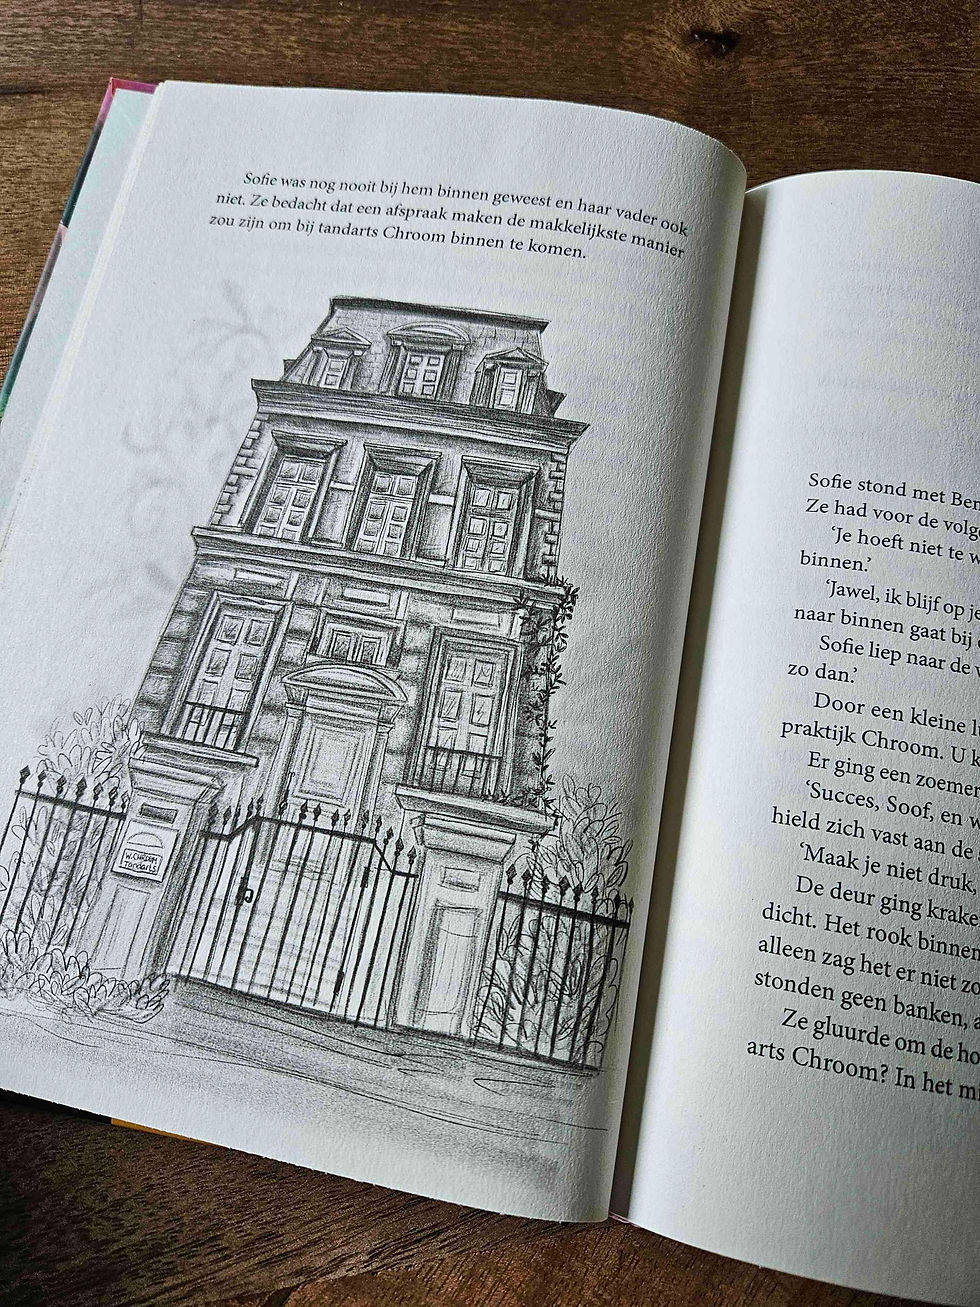 Sofie was nog nooit bij hem binnen geweest en haar vader ook
niet. Ze bedacht dat een afspraak maken de makkelijkste manier
zou zijn om bij tandarts Chroom binnen te komen.
W. CHROOM
Tandarts
Sofie stond met Ber
Ze had voor de volg
‘Je hoeft niet te w
binnen.’
‘Jawel, ik blijf op je
naar binnen gaat bij
Sofie liep naar de
zo dan.’
Door een kleine
praktijk Chroom. U k
Er ging een zoemer
‘Succes, Soof, en w
hield zich vast aan de
‘Maak je niet druk,
De deur ging krake
dicht. Het rook binnen
alleen zag het er niet zo
stonden geen banken, a
Ze gluurde om de ho
arts Chroom? In het m